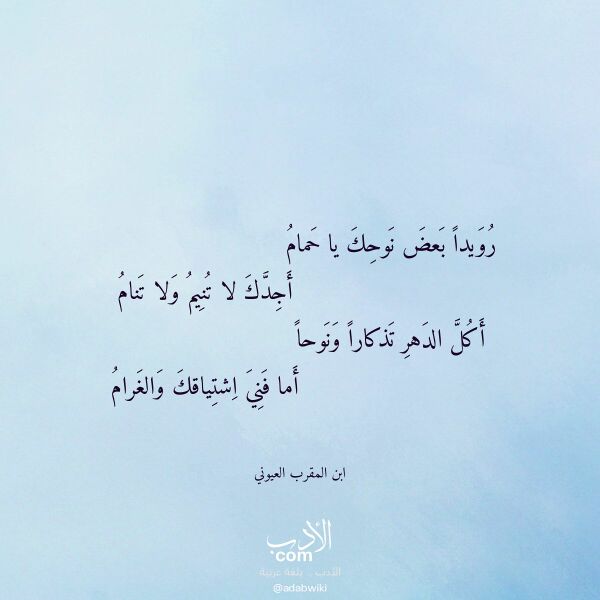 رُوَيداً بَعضَ نَوحِكَ يا حَمامُ
أَجِدَّكَ لا تُنِيمُ وَلا تَنامُ
أَكُلَّ الدَهرِ تَذكاراً وَنَوحاً
أَما فَنِيَ اِشتِياقكَ وَالغَرامُ
ابن المقرب العيوني
الأدب
com
الأدب .. بلغة عربية
@adabwiki